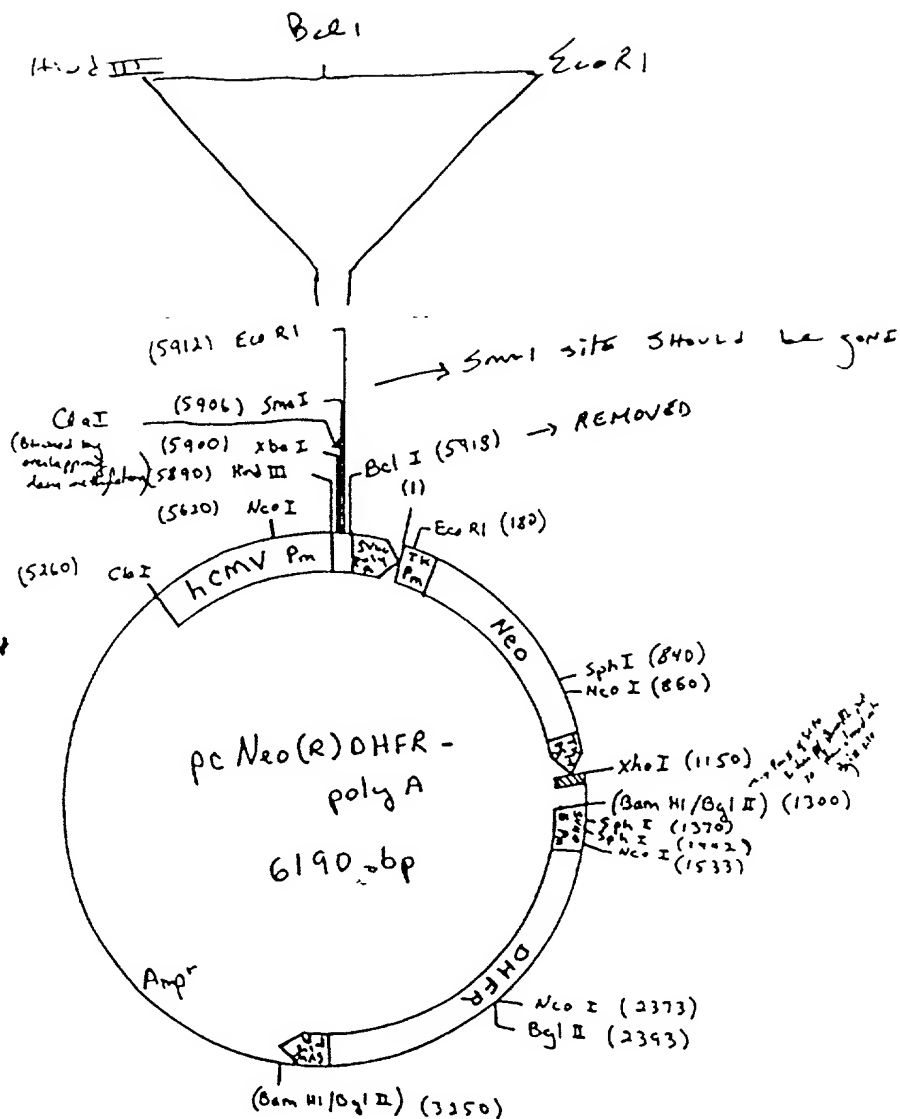 Bcl 1
Hind III
EcoR1
(5912) EcoR1
→ Sma1 site SHOULD be gone
(5906) SmaI
ClaI
(Blocked by
overlapping
dam methylation)
(5900) XbaI
Bcl I (5918) → REMOVED
(5890) Hind III
(1)
(5620) NcoI
EcoR1 (182)
(5260) ClaI
hCMV Pm
SV40
Poly
A
TK
Pm
Neo
SphI (840)
NcoI (860)
TK
XhoI (1150)
(Bam H1/Bgl II) (1300)
SphI (1370)
SphI (1442)
NcoI
(1533)
SV40
pc Neo(R) DHFR -
poly A
6190 bp
DHFR
Ampr
NcoI (2373)
Bgl II (2393)
(Bam H1/Bgl II) (3250)